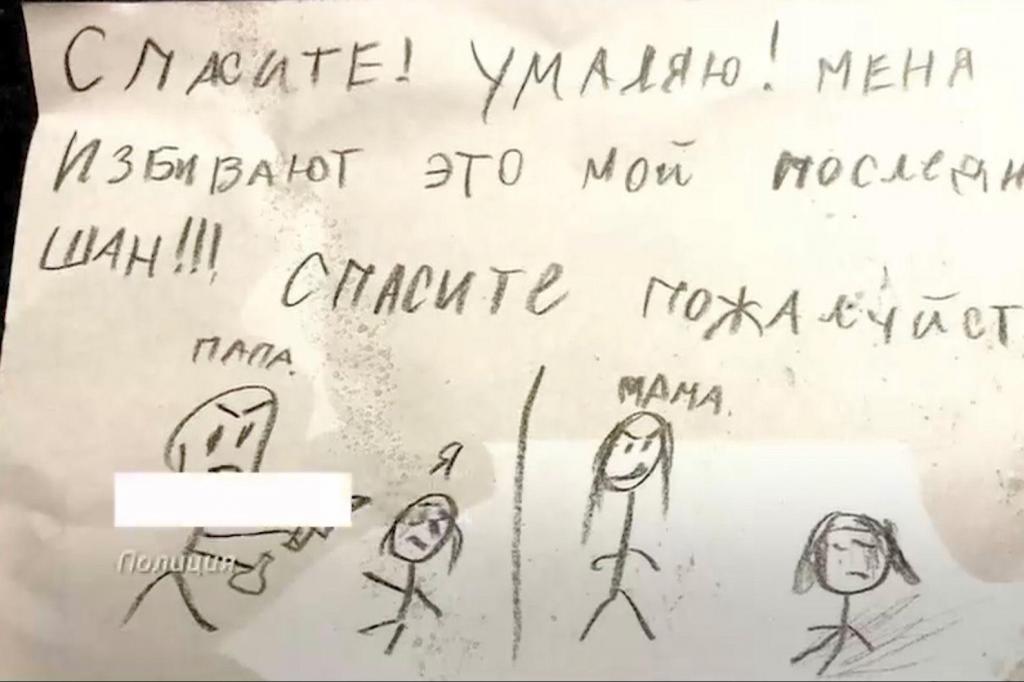 СПАСИТЕ! УМАЛЯЮ! МЕНЯ
ИЗБИВАЮТ ЭТО МОЙ ПОСЛЕДН
ШАН!!!
СПАСИТЕ ПОЖАЛУЙСТ
ПАПА.
МАМА.
Я
Полиция